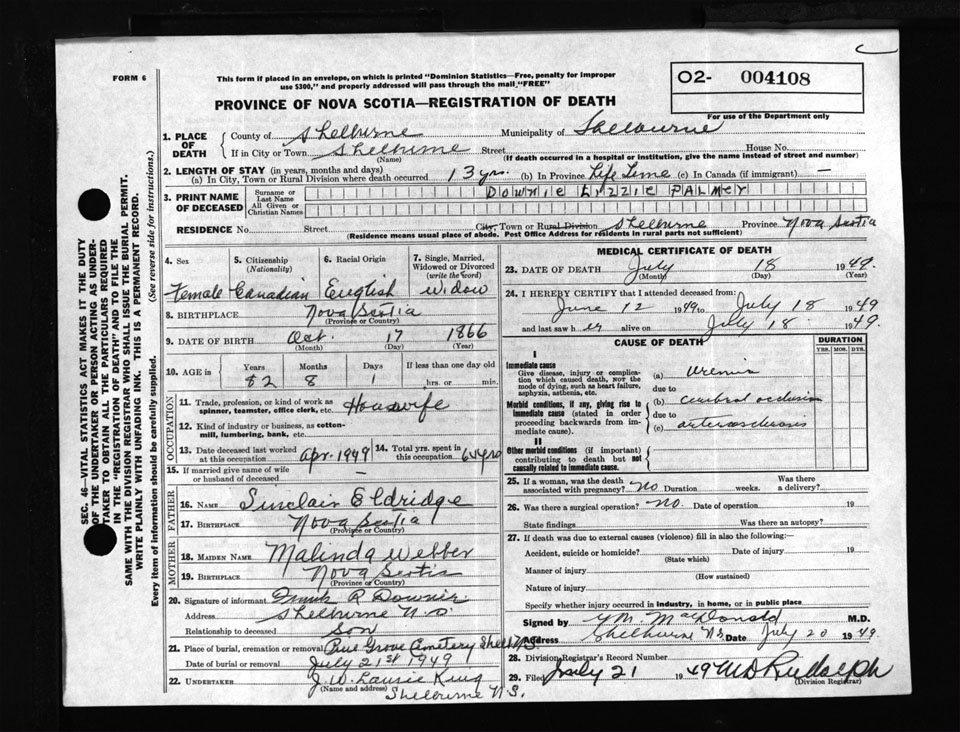 FORM 6
This form if placed in an envelope, on which is printed "Dominion Statistics—Free, penalty for improper
use $300," and properly addressed will pass through the mail "FREE"
O2- 004108
For use of the Department only
PROVINCE OF NOVA SCOTIA—REGISTRATION OF DEATH
SEC. 46—VITAL STATISTICS ACT MAKES IT THE DUTY
OF THE UNDERTAKER OR PERSON ACTING AS UNDER-
TAKER TO OBTAIN ALL THE PARTICULARS REQUIRED
IN THE "REGISTRATION OF DEATH" AND TO FILE THE
SAME WITH THE DIVISION REGISTRAR WHO SHALL ISSUE THE BURIAL PERMIT.
WRITE PLAINLY WITH UNFADING INK. THIS IS A PERMANENT RECORD.
Every item of information should be carefully supplied. (See reverse side for instructions.)
1. PLACE OF DEATH County of Shelburne Municipality of Shelburne
If in City or Town Shelburne Street House No.
(Name) (If death occurred in a hospital or institution, give the name instead of street and number)
2. LENGTH OF STAY (in years, months and days)
(a) In City, Town or Rural Division where death occurred 13 yrs. (b) In Province Life Time (c) In Canada (if immigrant) —
3. PRINT NAME OF DECEASED Surname or Last Name DOWNIE LIZZIE PALMEY
All Given or Christian Names
RESIDENCE No. Street City, Town or Rural Division Shelburne Province Nova Scotia
(Residence means usual place of abode. Post Office Address for residents in rural parts not sufficient)
4. Sex 5. Citizenship (Nationality) 6. Racial Origin 7. Single, Married, Widowed or Divorced (write the word)
Female Canadian English Widow
8. BIRTHPLACE Nova Scotia
(Province or Country)
9. DATE OF BIRTH Oct. 17 1866
(Month) (Day) (Year)
10. AGE in Years Months Days If less than one day old
82 8 1 hrs. or min.
OCCUPATION
11. Trade, profession, or kind of work as spinner, teamster, office clerk, etc. Housewife
12. Kind of industry or business, as cotton-mill, lumbering, bank, etc.
13. Date deceased last worked at this occupation Apr. 1949 14. Total yrs. spent in this occupation 64 yrs
15. If married give name of wife or husband of deceased —
FATHER
16. NAME Sinclair Eldridge
17. BIRTHPLACE Nova Scotia
(Province or Country)
MOTHER
18. MAIDEN NAME Malinda Webber
19. BIRTHPLACE Nova Scotia
(Province or Country)
20. Signature of informant Frank R Downie
Address Shelburne N.S.
Relationship to deceased Son
21. Place of burial, cremation or removal Pine Grove Cemetery Shel N.S.
Date of burial or removal July 21st 1949
22. UNDERTAKER J.W. Laurie King
(Name and address) Shelburne N.S.
MEDICAL CERTIFICATE OF DEATH
23. DATE OF DEATH July 18 1949.
(Month) (Day) (Year)
24. I HEREBY CERTIFY that I attended deceased from:
June 12 1949 to July 18 1949
and last saw her alive on July 18 1949.
CAUSE OF DEATH DURATION
YRS. MOS. DYS.
I
Immediate cause
Give disease, injury or complication which caused death, NOT the mode of dying, such as heart failure, asphyxia, asthenia, etc.
(a) Uremia
due to
Morbid conditions, if any, giving rise to immediate cause (stated in order proceeding backwards from immediate cause).
(b) cerebral occlusion
due to
(c) arteriosclerosis
II
Other morbid conditions (if important) contributing to death but not causally related to immediate cause.
25. If a woman, was the death associated with pregnancy? No Duration weeks. Was there a delivery?
26. Was there a surgical operation? No. Date of operation 19
State findings Was there an autopsy?
27. If death was due to external causes (violence) fill in also the following:
Accident, suicide or homicide? Date of injury 19
(State which)
Manner of injury
(How sustained)
Nature of injury
Specify whether injury occurred in industry, in home, or in public place
Signed by MacDonald M.D.
Address Shelburne N.S. Date July 20 1949
28. Division Registrar's Record Number
29. Filed July 21 1949 M D Rudolph
(Division Registrar)